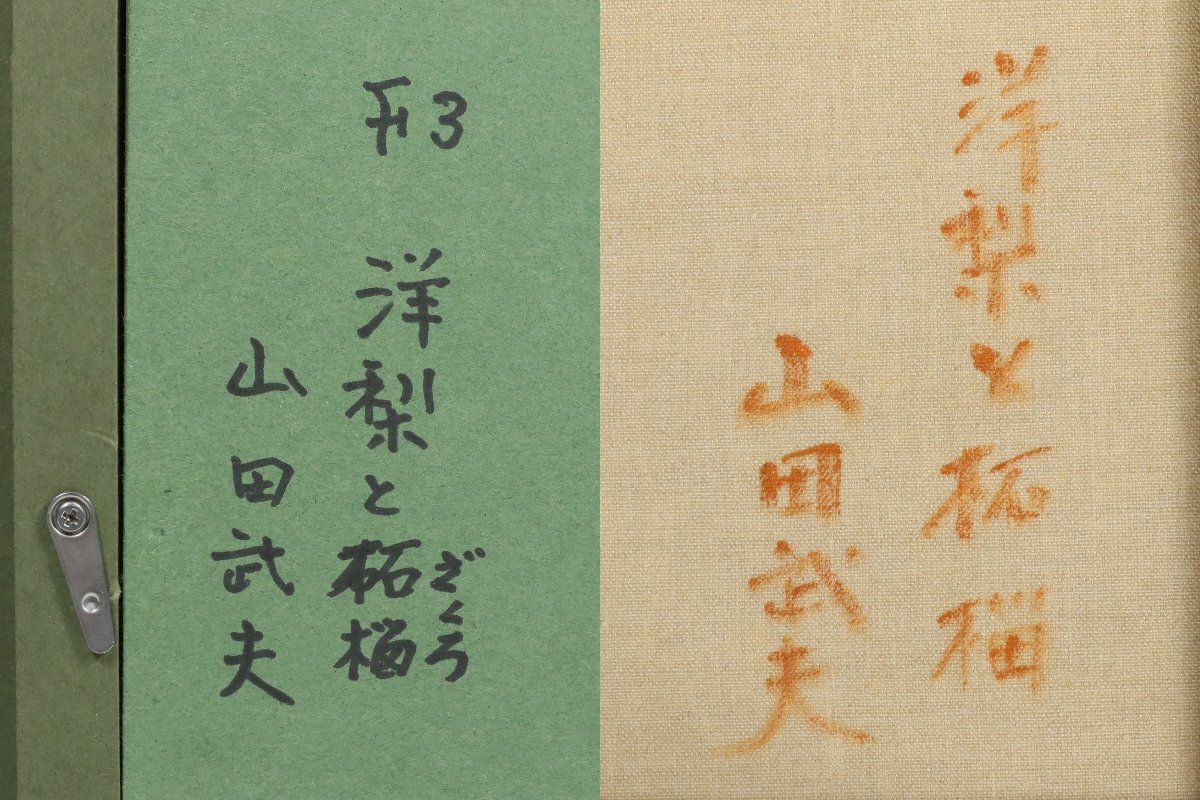 3
洋梨と柘榴
ざくろ
山田武夫
洋梨と柘榴
山田武夫